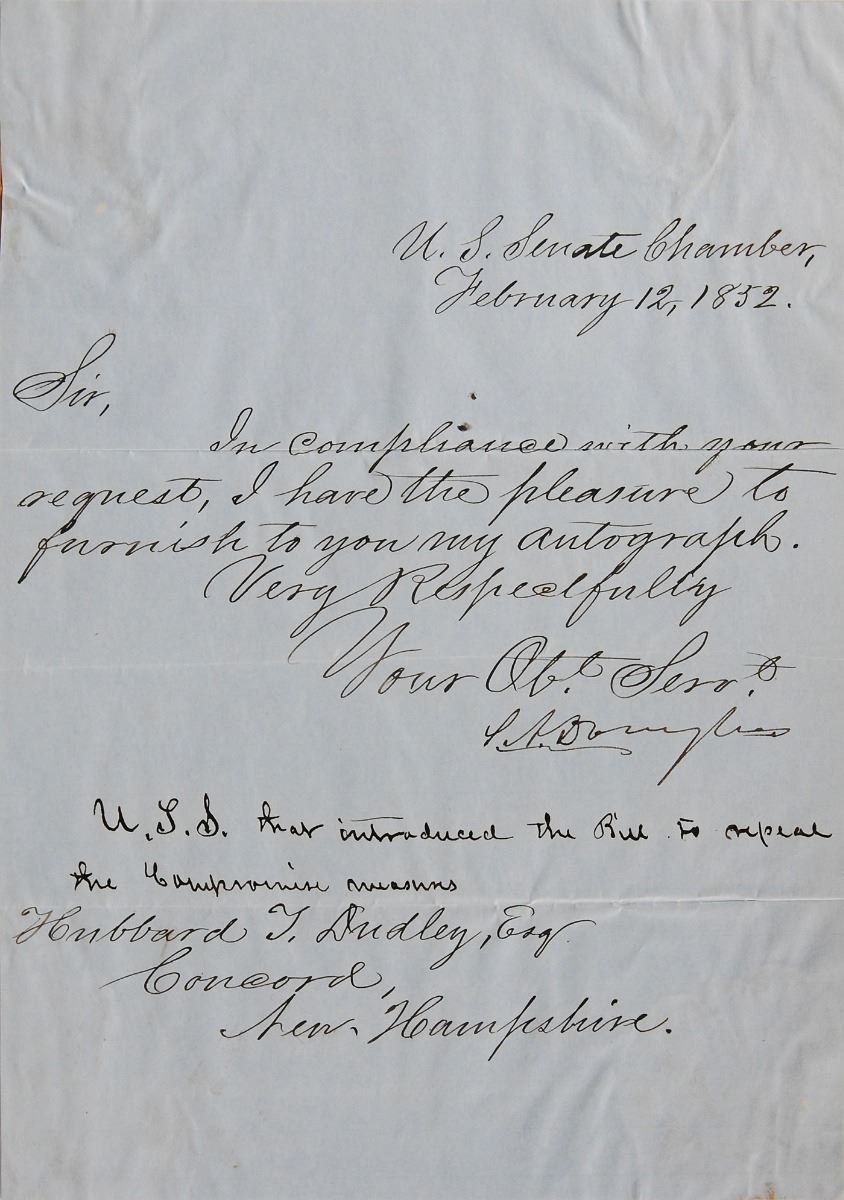 U. S. Senate Chamber,
February 12, 1852.
Sir,
In compliance with your
request, I have the pleasure to
furnish to you my autograph.
Very Respectfully
Your Obt. Servt.
S. A. Douglas
U. S. S. that introduced the Bill to repeal
the Compromise measures
Hubbard T. Dudley, Esq.
Concord,
New Hampshire.